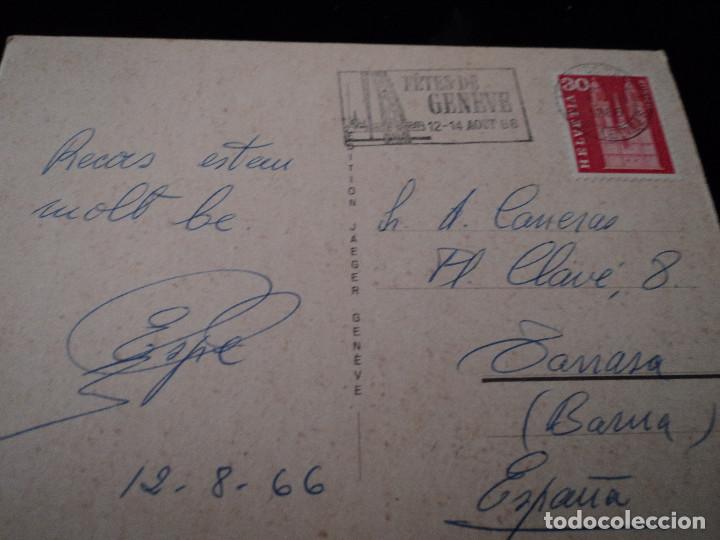 FÊTES DE
GENÈVE
12-14 AOUT 66
30
HELVETIA
Recors estem
molt be.
Espe
12-8-66
EDITION JAEGER GENÈVE
Sr. A. Carreras
Pl. Clavé, 8.
Tarrasa
(Barna)
España
todocoleccion